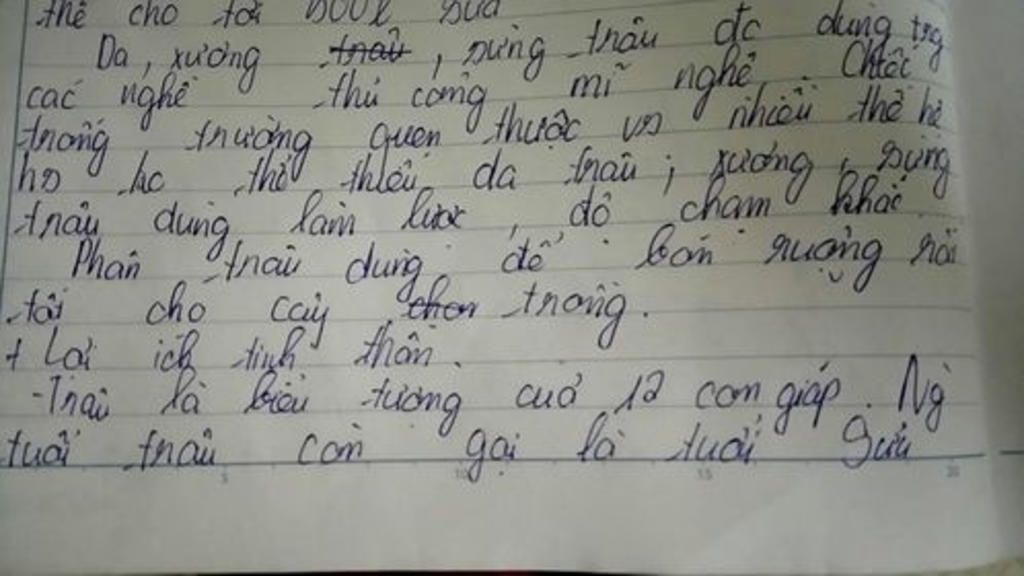 thể cho tới 500l sữa
Da, xương trâu, sừng trâu đc dùng trg
các nghề thủ công mĩ nghệ. Chiếc
trống trường quen thuộc vs nhiều thế hệ
hs ko thể thiếu da trâu; xương, sừng
trâu dùng làm lược, đồ chạm khắc.
Phân trâu dùng để bón ruộng rồi
tới cho cây trồng.
+ Lợi ích tinh thần.
- Trâu là biểu tượng của 12 con giáp. Ng
tuổi trâu còn gọi là tuổi Sửu